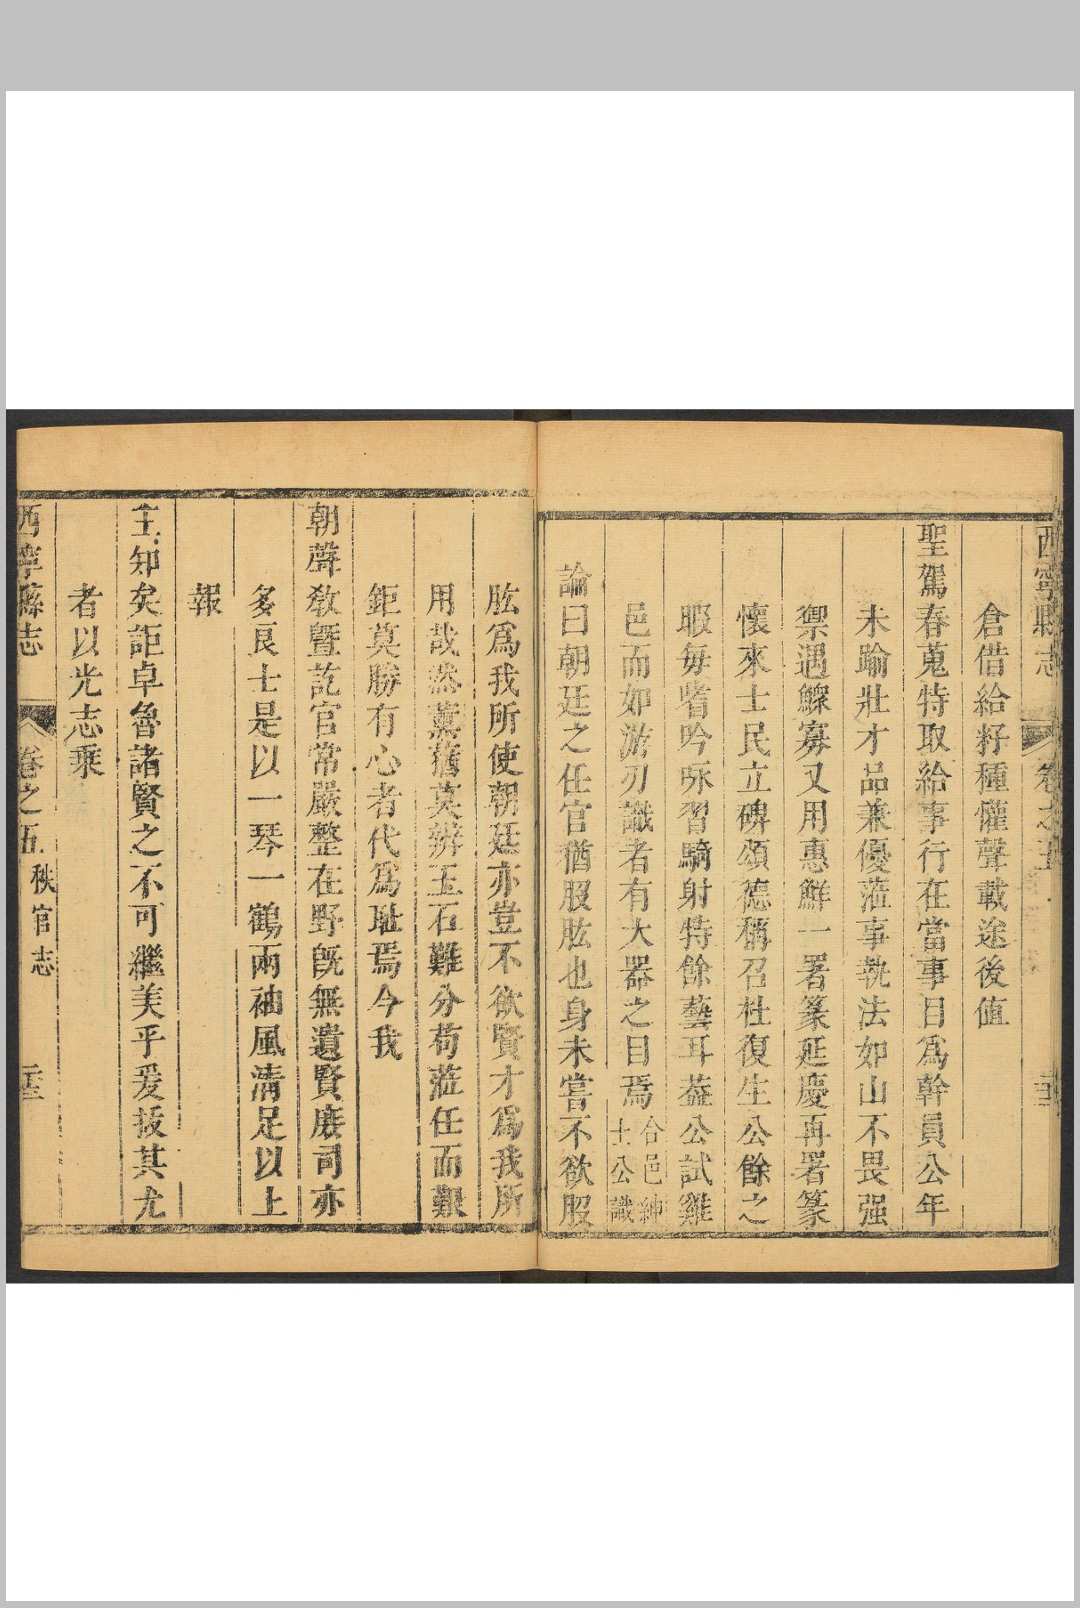 西寧縣志 卷之五
倉借給籽種懽聲載途後值
聖駕春蒐特取給事行在當事目爲幹員公年
未踰壯才品兼優蒞事執法如山不畏强
禦遇鰥寡又用惠鮮一署篆延慶再署篆
懷來士民立碑頌德稱召杜復生公餘之
暇每嗜吟咏習騎射特餘藝耳葢公試雞
邑而如游刃識者有大器之目焉 合邑紳
士公識
論曰朝廷之任官猶股肱也身未嘗不欲股
肱爲我所使朝廷亦豈不欲賢才爲我所
用哉然薰蕕莫辨玉石難分苟蒞任而艱
鉅莫勝有心者代爲耻焉今我
朝聲敎曁訖官常嚴整在野旣無遺賢庶司亦
多良士是以一琴一鶴兩袖風清足以上
報
主知矣詎卓魯諸賢之不可繼美乎爰拔其尤
者以光志乗
西寧縣志 卷之五 秩官志